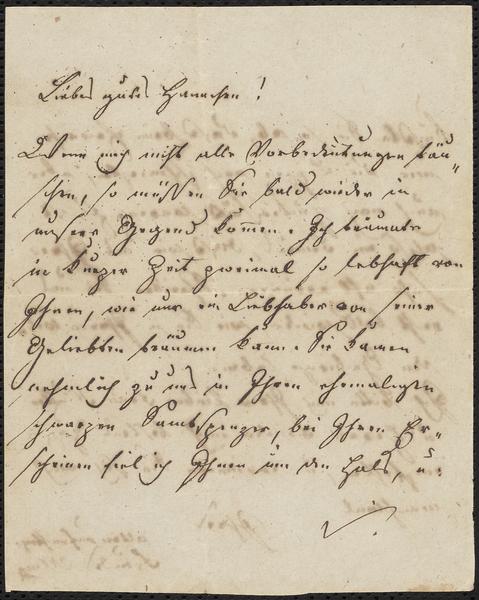 Liebes gutes Hannchen!
Wenn mich nicht alle Vorbedeutungen täu-
schen, so müssen Sie bald wieder in
unsere Gegend kommen. Ich träumte
in kurzer Zeit zweimal so lebhaft von
Ihnen, wie nur ein Liebhaber von seiner
Geliebten träumen kann. Sie kamen
nehmlich zu uns in Ihrem ehemaligen
schwarzen Samtspenzer, bei Ihrem Er-
scheinen fiel ich Ihnen um den Hals, u: